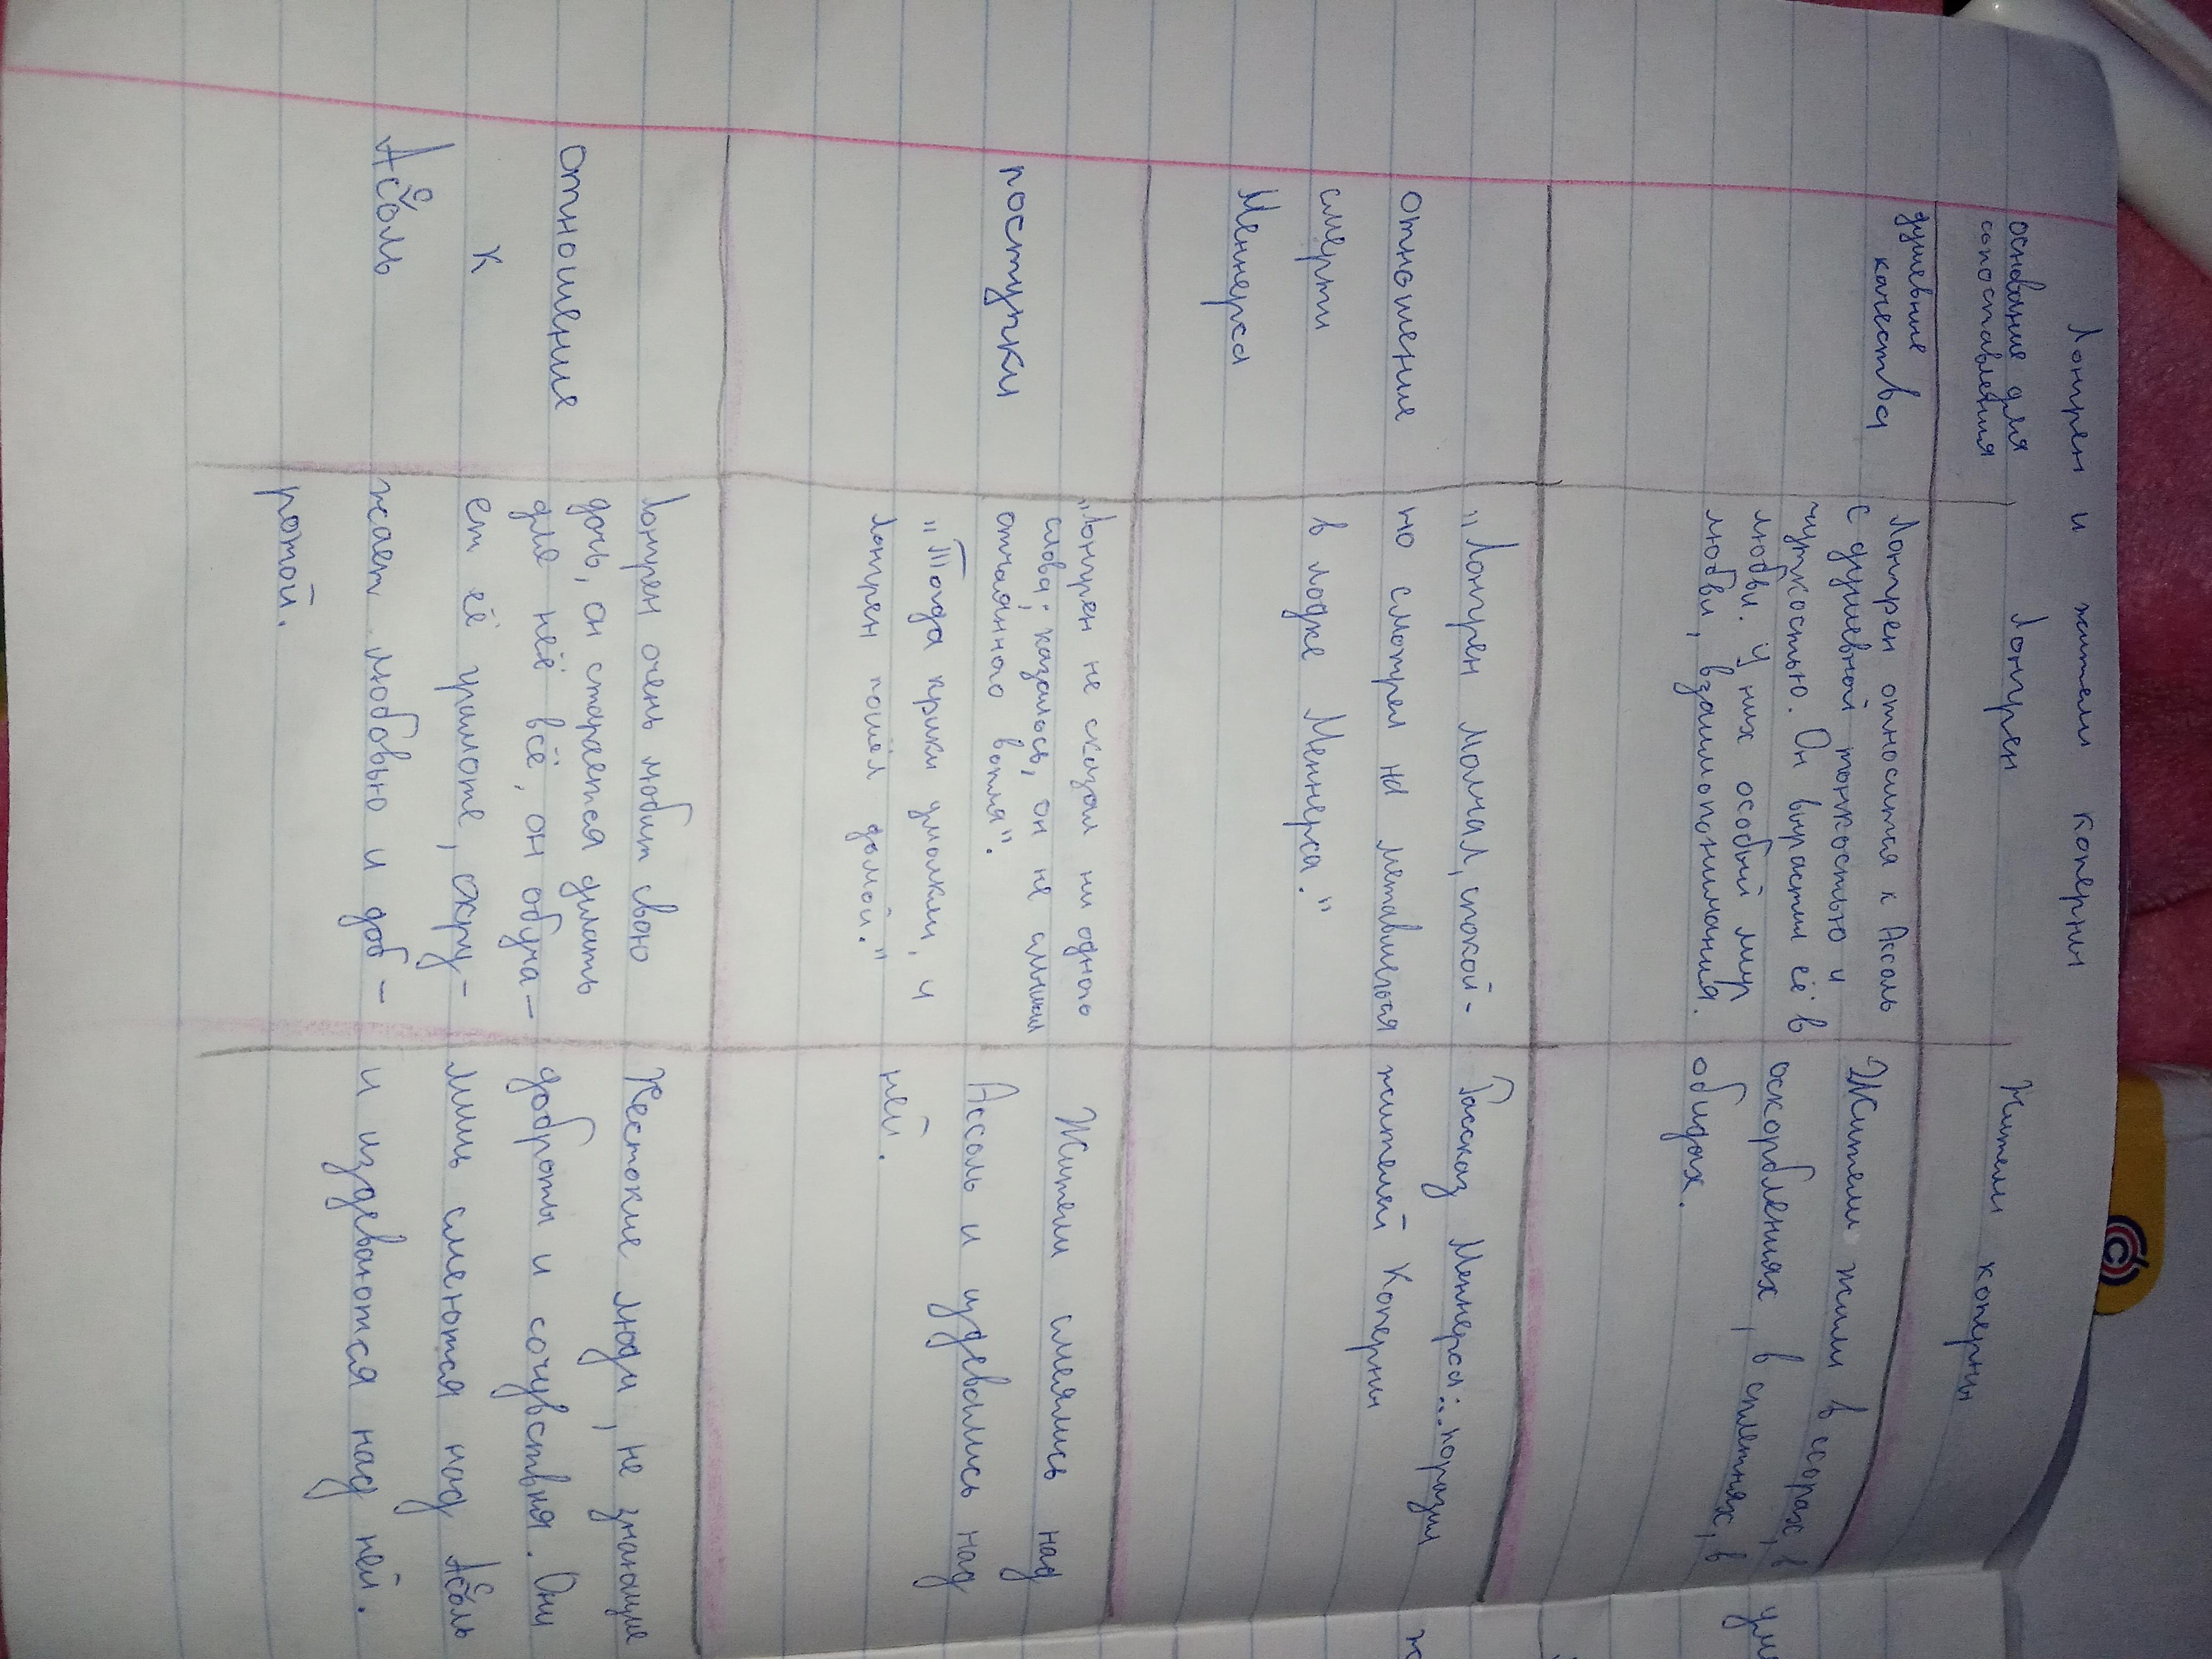 Лонгрен и жители каперны
основание для
сопоставления
Лонгрен
Жители каперны
душевные
качества
Лонгрен относится к Асоль
с душевной тонкостью и
чуткостью. Он вырастил её в
любви. У них особый мир
любви, взаимопонимания.
Жители жили в ссорах, в
оскорблениях, в сплетнях, в
обидах.
отношение
смерти
Меннерса
"Лонгрен молчал, спокой-
но смотрел на метавшегося
в лодке Меннерса."
Рассказ Меннерса... поразил
жителей Каперны
поступки
"Лонгрен не сказал ни одного
слова; казалось, он не слышал
отчаянного вопля".
"Тогда крики умолкли, и
Лонгрен пошёл домой."
Жители смеялись над
Ассоль и издевались над
ней.
отношение
к
Асоль
Лонгрен очень любит свою
дочь, он старается делать
для неё всё, он обуча-
ет её грамоте, окру-
жает любовью и доб-
ротой.
Жестокие люди, не знающие
доброты и сочувствия. Они
лишь смеются над Асоль
и издеваются над ней.